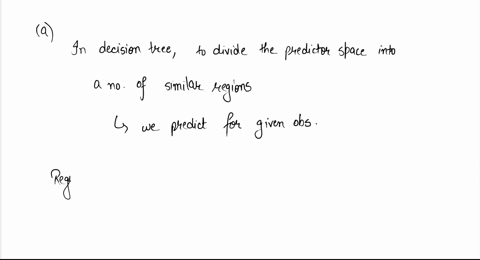 (a)
In decision tree, to divide the predictor space into
a no. of similar regions
↳ we predict for given obs.
Reg